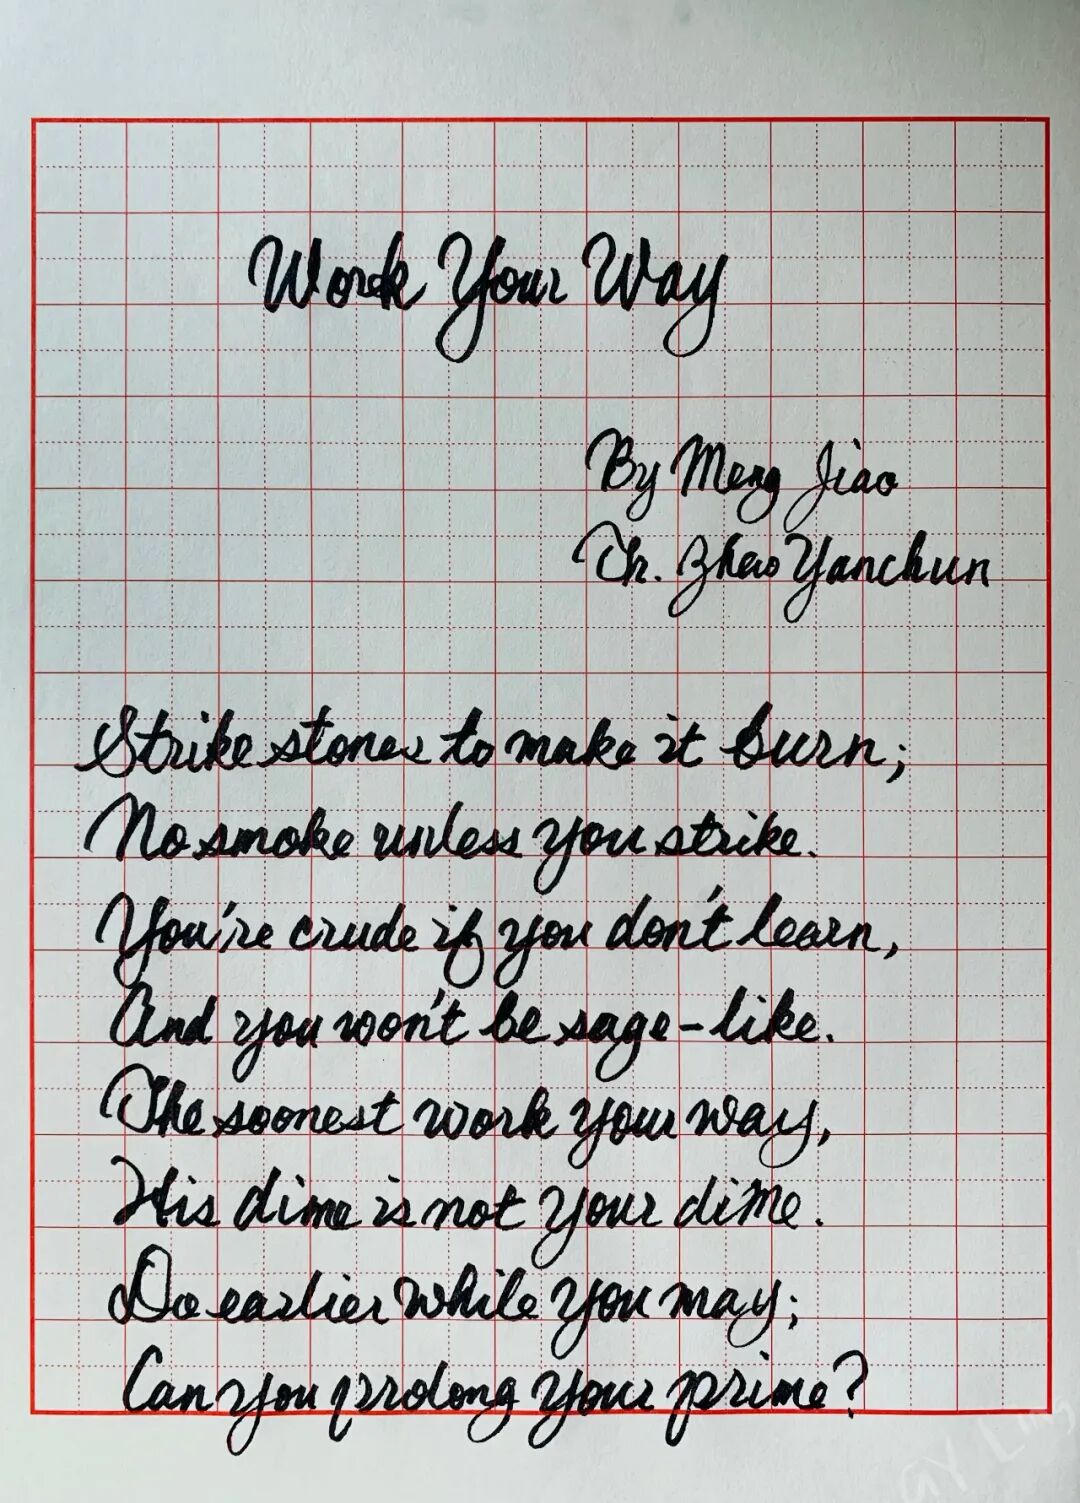 Work Your Way
By Meng Jiao
Tr. Zhao Yanchun
Strike stones to make it burn;
No smoke unless you strike.
You're crude if you don't learn,
And you won't be sage-like.
The soonest work your way,
His dime is not your dime.
Do earlier while you may;
Can you prolong your prime?